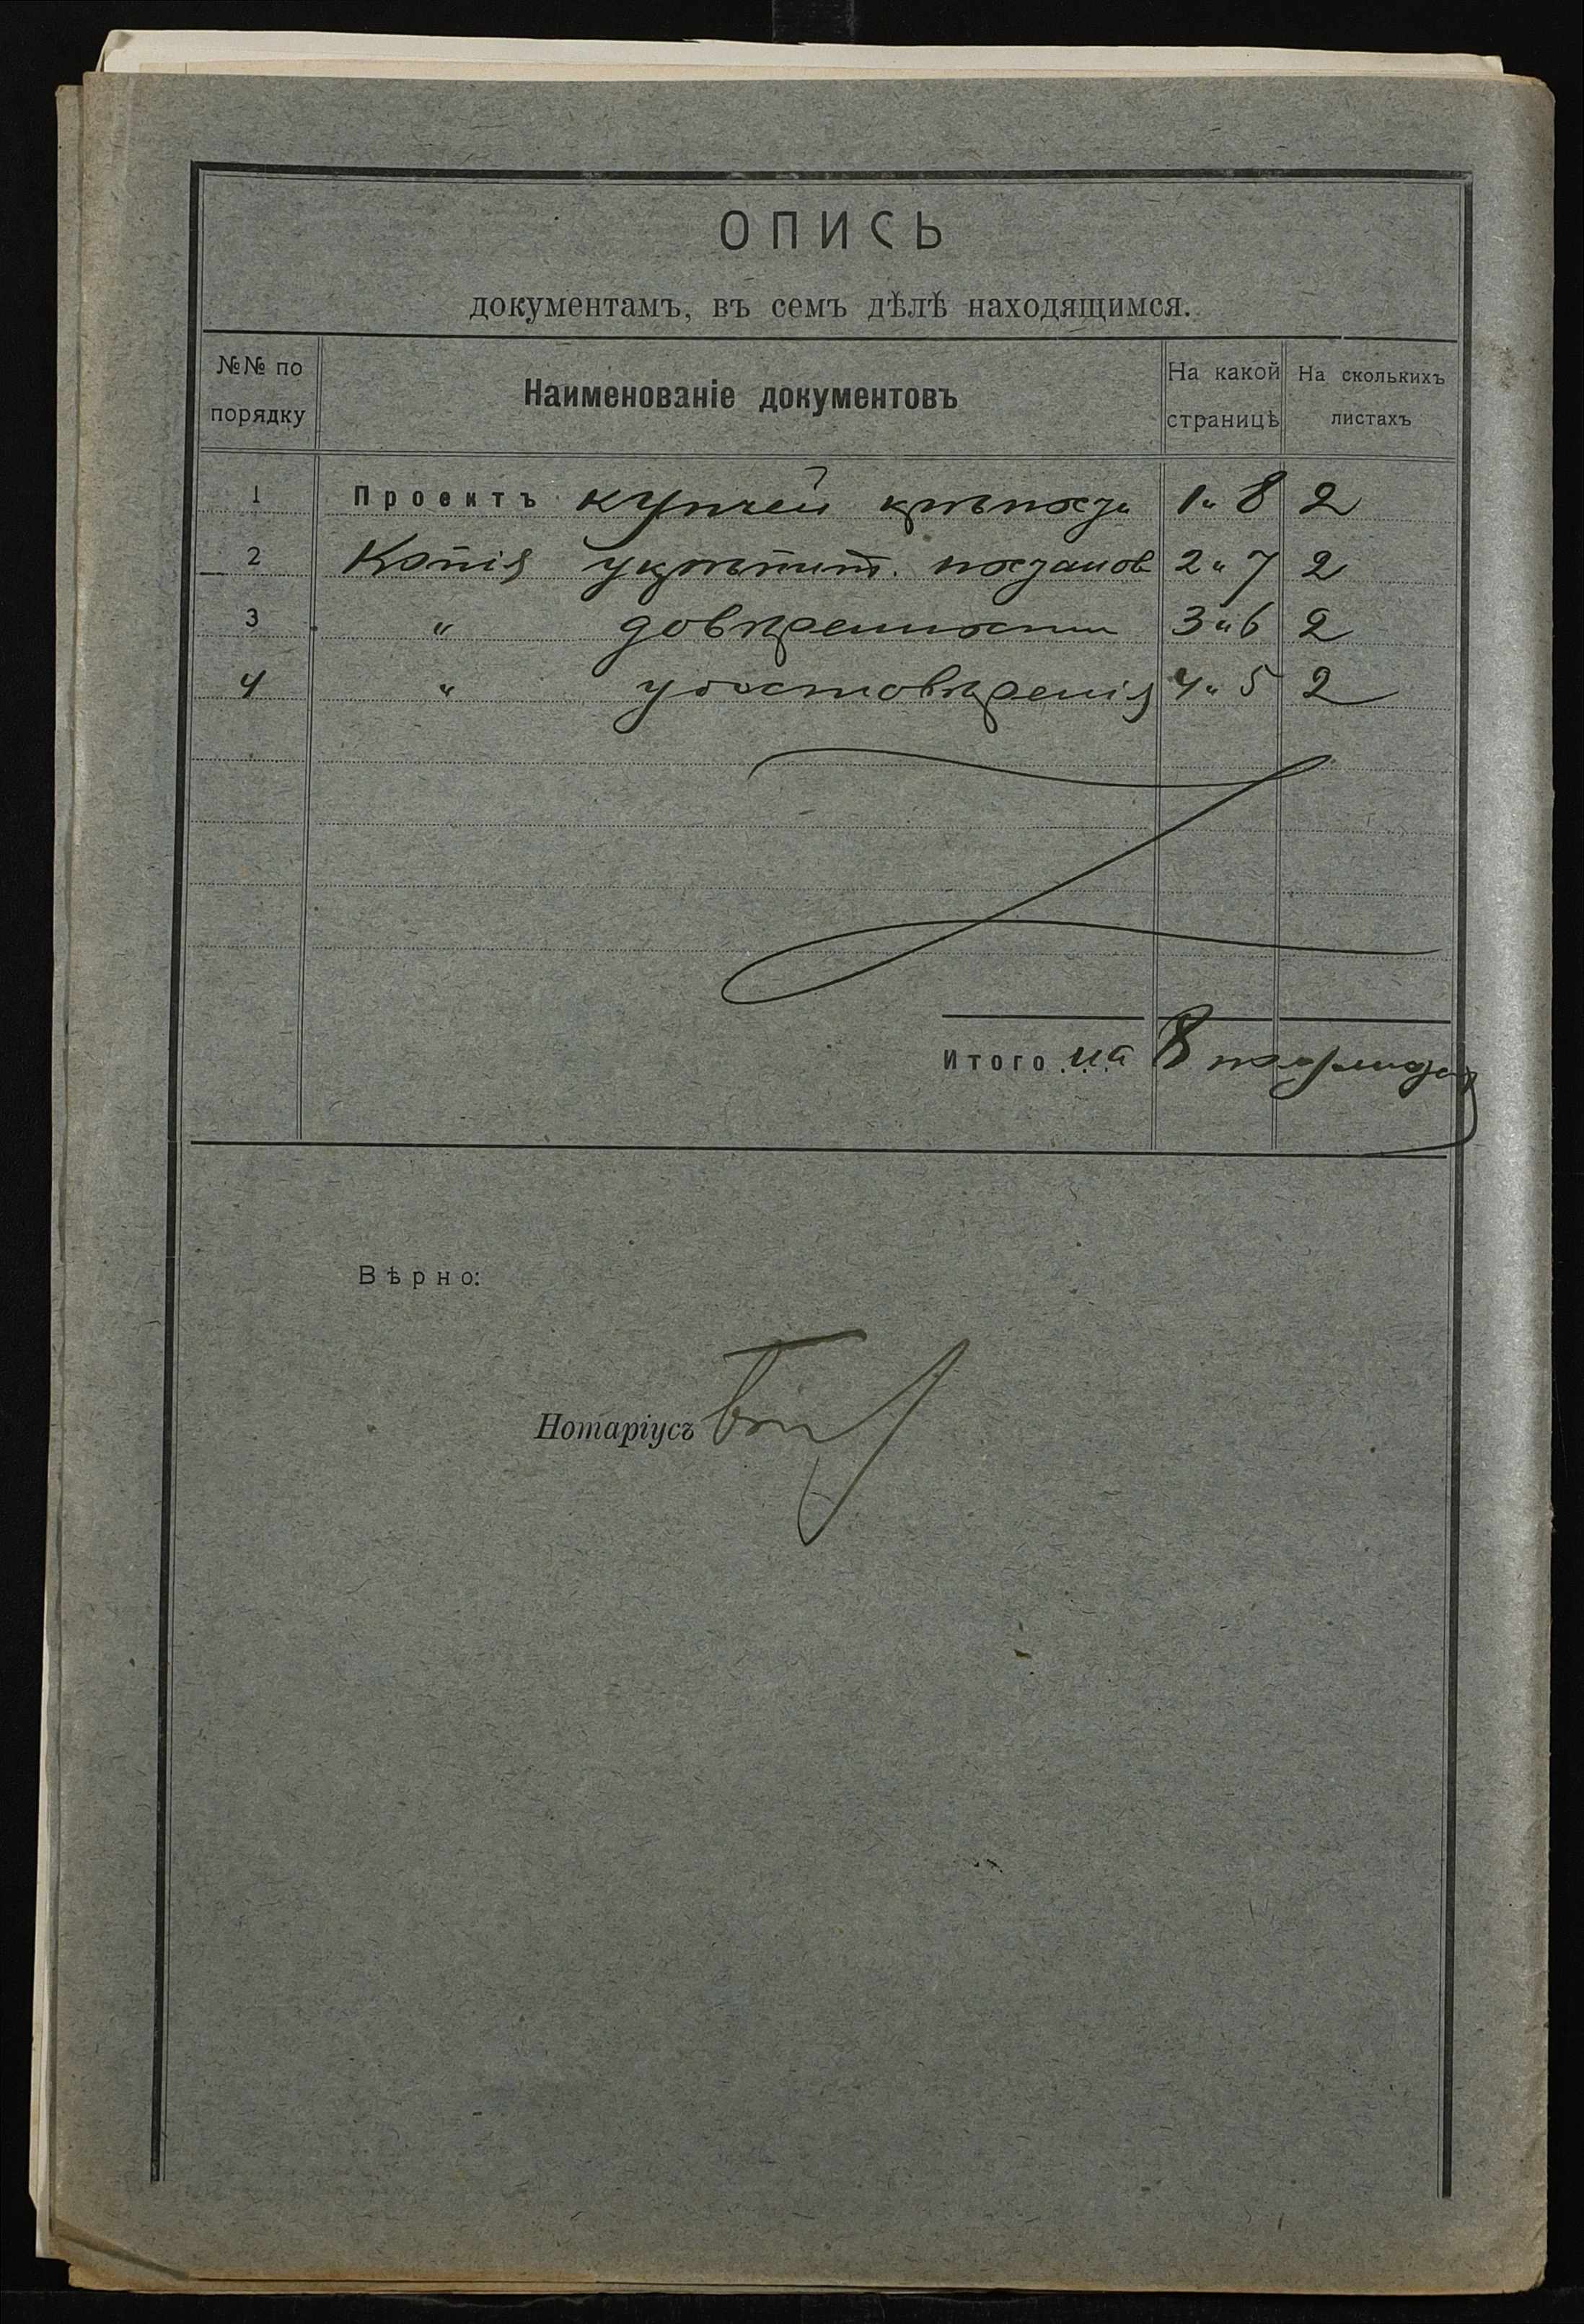 ОПИСЬ
документамъ, въ семъ дѣлѣ находящимся.
№№ по порядку
Наименованіе документовъ
На какой страницѣ
На сколькихъ листахъ
1 Проектъ купчей крѣпости 1 " 8 2
2 Копія укрѣпит. постанов 2 " 7 2
3 " довѣренности 3 " 6 2
4 " удостовѣренія 4 " 5 2
Итого на 8
Вѣрно:
Нотаріусъ